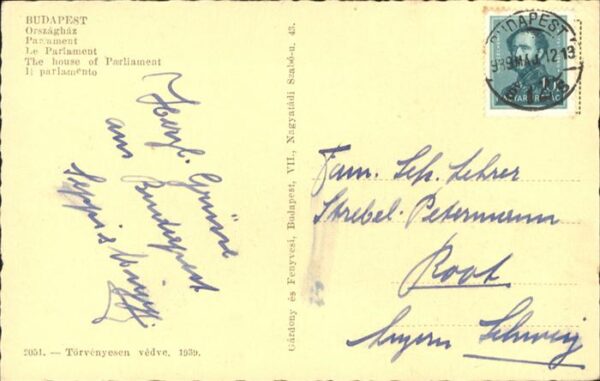 BUDAPEST
Országház
Parlament
Le Parlament
The house of Parliament
Il parlamento
Herzl. Grüsse
aus Budapest
Seppi &
Gárdony és Fenyvesi, Budapest, VII., Nagyatádi Szabó-u. 43.
BUDAPEST
939 MÁJ. 12 13
MAGYAR
Fam. Sep. Lehrer
Strebel-Petermann
Root
Luzern Schweiz
2051. — Törvényesen védve. 1939.